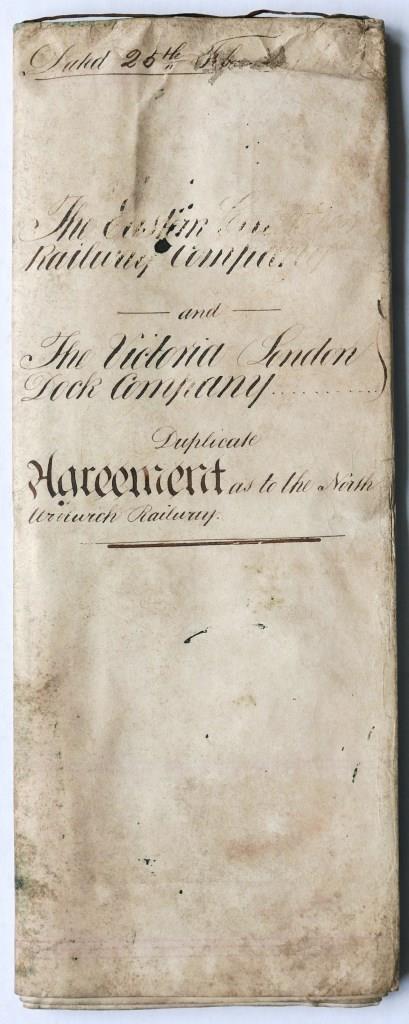 Dated 25th
The Eastern
Railway Compa
and
The Victoria London
Dock Company
Duplicate
Agreement as to the North
Railway.